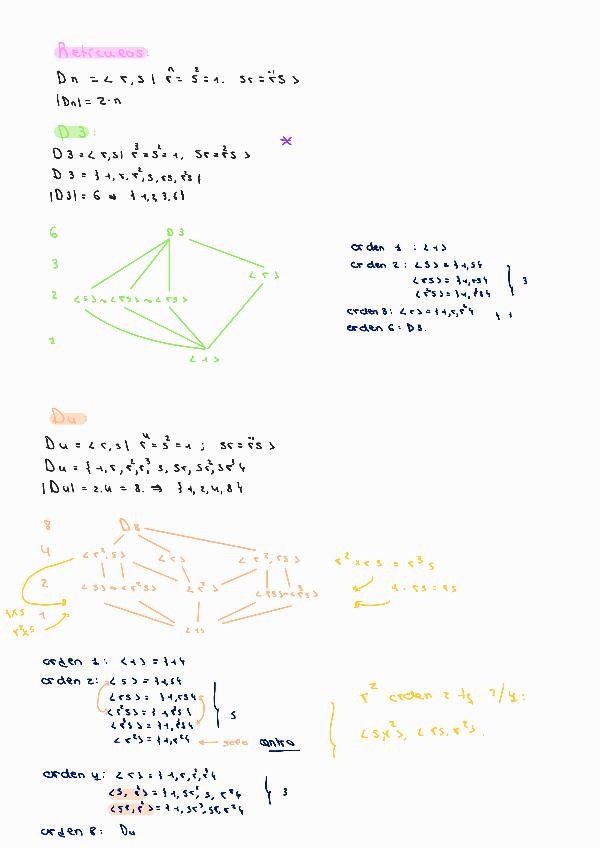 Retículos:
Dn = < r, s | rⁿ = s² = 1, sr = r⁻¹s >
|Dn| = 2·n
D3:
D3 = < r, s | r³ = s² = 1, sr = r²s >
D3 = {1, r, r², s, rs, r²s}
|D3| = 6 ⇒ {1,2,3,6}
6 D3
3 <r>
2 <s> ~ <rs> ~ <r²s>
1 <1>
orden 1 : <1>
orden 2 : <s> = {1,s}
<rs> = {1,rs}
<r²s> = {1,r²s} } 3
orden 3: <r> = {1,r,r²} } 1
orden 6: D3.
D4
D4 = < r, s | r⁴ = s² = 1 ; sr = r⁻¹s >
D4 = {1, r, r², r³, s, sr, sr², sr³}
|D4| = 2.4 = 8. ⇒ {1,2,4,8}
8 D8
4 <r²,s> <r> <r²,rs>
2 <s> ~ <r²s> <r²> <rs> ~ <r³s>
1 <1>
r² × rs = r³s
1 · rs = rs
1×s
r²×s
orden 1: <1> = {1}
orden 2: <s> = {1,s}
<rs> = {1,rs}
<r²s> = {1,r²s} } 5
<r³s> = {1,r³s}
<r²> = {1,r²} ← centro
r² orden 2
<s,r²>, <rs,r²>.
orden 4: <r> = {1,r,r²,r³}
<s, r²> = {1, sr², s, r²} } 3
<sr, r²> = {1, sr³, sr, r²}
orden 8: D4